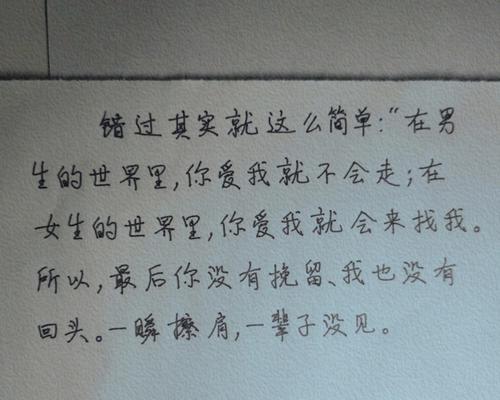 错过其实就这么简单:“在男
生的世界里,你爱我就不会走;在
女生的世界里,你爱我就会来找我。
所以,最后你没有挽留、我也没有
回头。一瞬擦肩,一辈子没见。